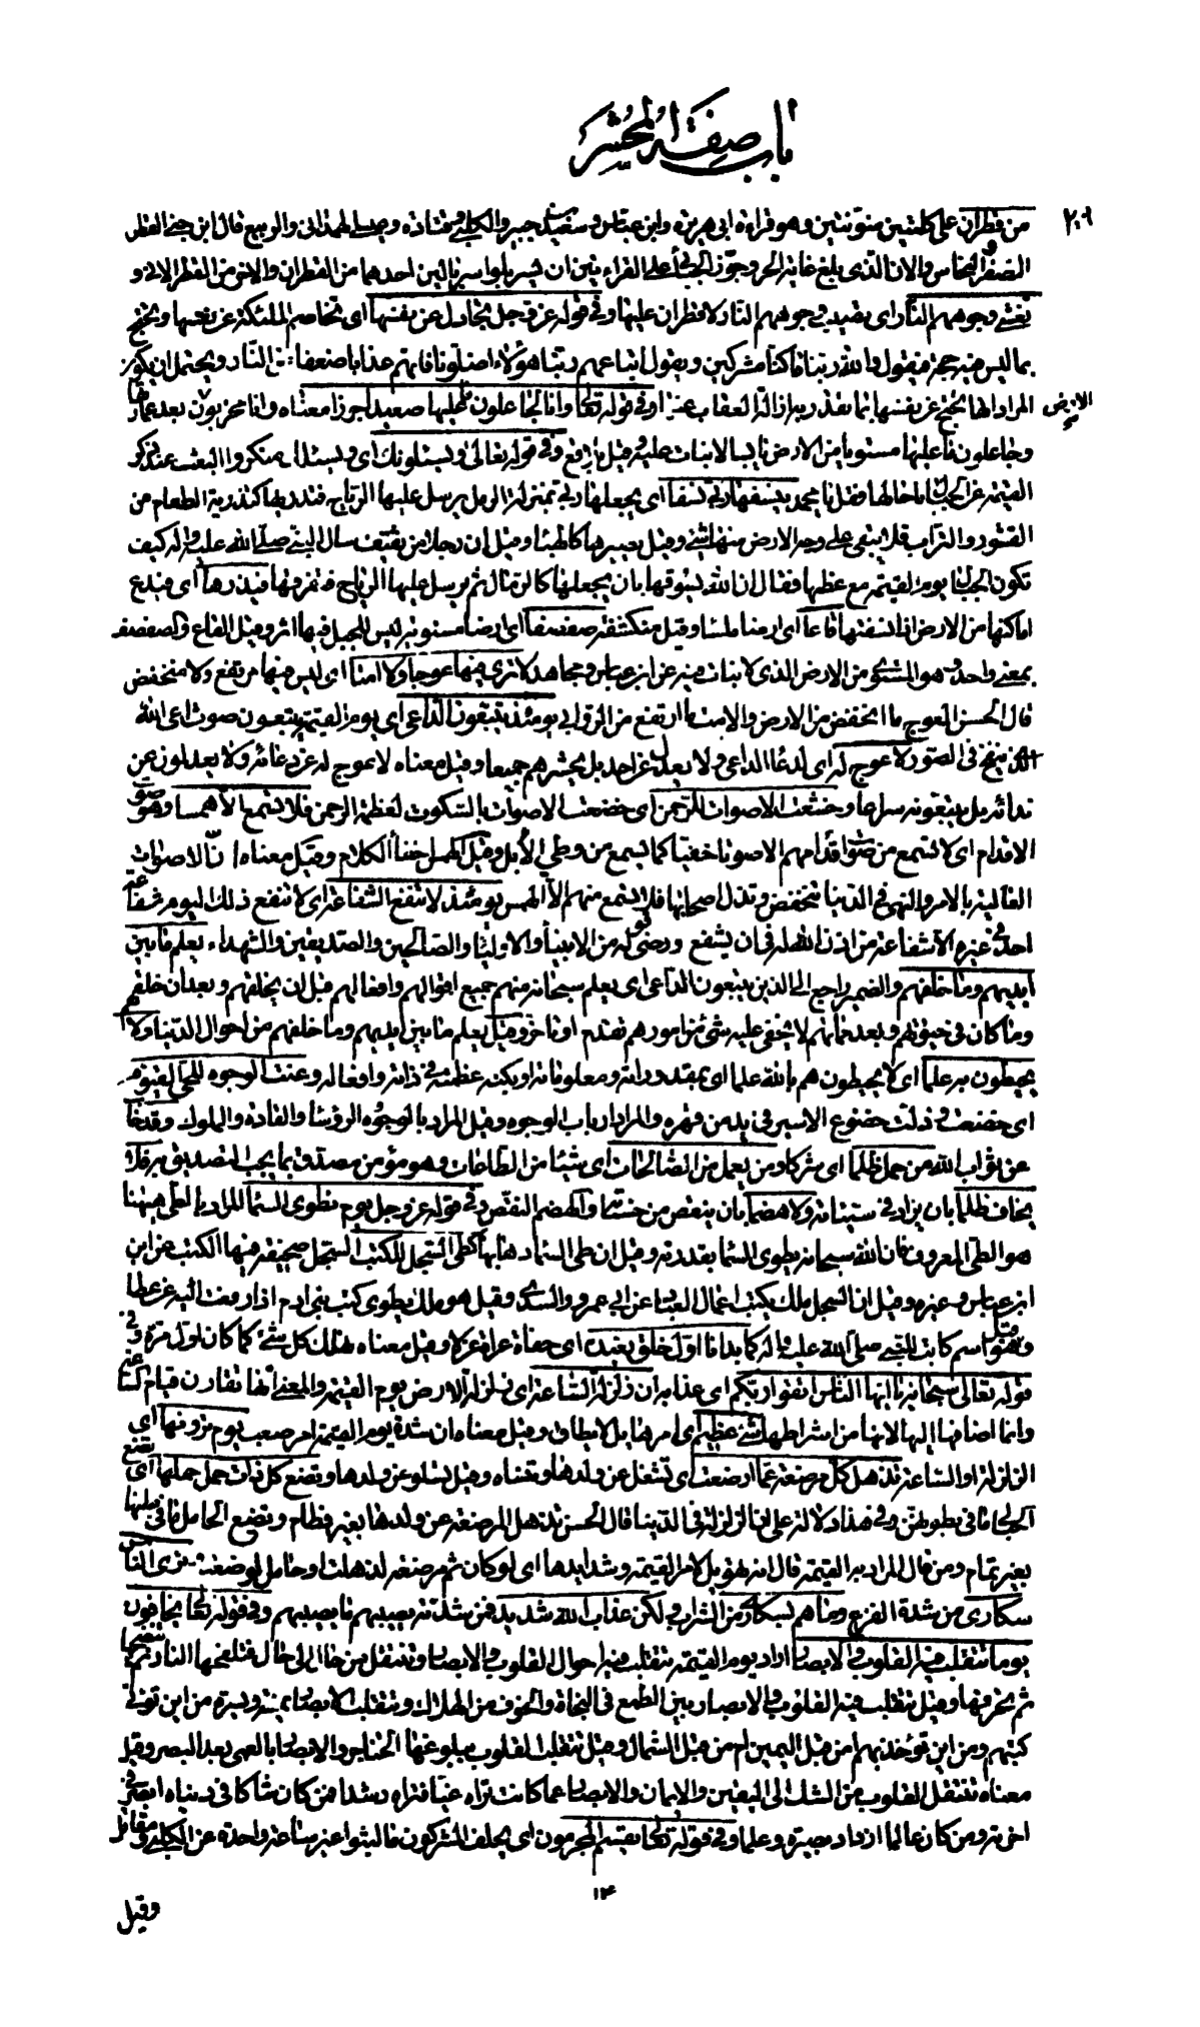 باب صفة المحشر
٢٠٦
من قطران على كلمتين منونتين وهو قراءة ابى هريرة وابن عباس وسعيد بن جبير والكلبى وقتادة وعيسى الهمدانى والربيع قال ابن جنى القطر
الصفر والنحاس والان الذى بلغ غاية الحر وجوز الجبائى على القراءتين ان يسربلوا سربالين احدهما من القطران والاخر من القطر الانى و
تغشى وجوههم النار اى تصيب وجوههم النار لا قطران عليها وفى قوله عز وجل تجادل عن نفسها اى تخاصم الملئكة عن نفسها وتحتج
بما ليس فيه حجة فيقول والله ربنا ما كنا مشركين ويقول اتباعهم ربنا هؤلاء اضلونا فاتهم عذابا ضعفا من النار ويحتمل ان يكون
المراد انها تحتج عن نفسها بما تقدر به ازالة العقاب عنها وفى قوله تعالى وانا لجاعلون ما عليها صعيدا جرزا معناه وانا مخربون بعد عمارتنا
الارض
وجاعلون ما عليها مستويا من الارض يابسا لا نبات عليه وقيل بلاقع وفى قوله تعالى ويسئلونك اى ويسئلك منكروا البعث عند ذكر
القيمة عن الجبال ما حالها فقل يا محمد ينسفها ربى نسفا اى يجعلها ربى بمنزلة الرمل يرسل عليها الرياح فتذريها كتذرية الطعام من
القشور والتراب فلا يبقى على وجه الارض منها شئ وقيل يصيرها كالهباء وقيل ان رجلا من ثقيف سال النبى صلى الله عليه واله كيف
تكون الجبال يوم القيمة مع عظمها فقال ان الله يسوقها بان يجعلها كالرمال ثم يرسل عليها الرياح فتفرقها فيذرها اى فيدع
اماكنها من الارض اذا نسفتها قاعا اى ارضا ملساء وقيل منكشفة صفصفا اى ارضا مستوية ليس للجبل فيها اثر وقيل القاع والصفصف
بمعنى واحد وهو المستوى من الارض الذى لا نبات فيه عن ابن عباس ومجاهد لا ترى فيها عوجا ولا امتا اى ليس فيها مرتفع ولا منخفض
قال الحسن العوج ما انخفض من الارض والامت ما ارتفع من الروابى يومئذ يتبعون الداعى اى يوم القيمة يتبعون صوت داعى الله
الذى ينفخ فى الصور لا عوج له اى لدعاء الداعى ولا يعدل عن احد بل يحشرهم جميعا وقيل معناه لا عوج لهم عن دعائه ولا يعدلون عن
ندائه بل يتبعونه سراعا وخشعت الاصوات للرحمن اى خضعت الاصوات بالسكوت لعظمة الرحمن فلا تسمع الا همسا وهو صوت
الاقدام اى لا تسمع من صوت اقدامهم الا صوتا خفيا كما يسمع من وطى الابل وقيل الهمس اخفاء الكلام وقيل معناه ان الاصوات
العالية بالامر والنهى فى الدنيا تنخفض وتذل اصحابها فلا تسمع منهم الا الهمس يومئذ لا تنفع الشفاعة اى لا تنفع ذلك اليوم شفاعة
احد فى غيره الا شفاعة من اذن الله له فى ان يشفع ورضى قوله من الانبياء والاولياء والصالحين والصديقين والشهداء يعلم ما بين
ايديهم وما خلفهم والضمير راجع الى الذين يتبعون الداعى اى يعلم سبحانه منهم جميع اقوالهم وافعالهم قبل ان يخلقهم وبعد ان خلقهم
وما كان فى حيوتهم وبعد مماتهم لا يخفى عليه شئ من امورهم تقدم او تاخر وقيل يعلم ما بين ايديهم وما خلفهم من احوال الدنيا ولا
يحيطون به علما اى لا يحيطون هم بالله علما اى بمقدوراته ومعلوماته او بكنه عظمته فى ذاته وافعاله وعنت الوجوه للحى القيوم
اى خضعت وذلت خضوع الاسير فى يد من قهره والمراد ارباب الوجوه وقيل المراد بالوجوه الرؤساء والقادة والملوك وقد خاب
عن ثواب الله من حمل ظلما اى شركا ومن يعمل من الصالحات اى شيئا من الطاعات وهو مؤمن مصدق بما يجب التصديق به فلا
يخاف ظلما بان يزاد فى سيئاته ولا هضما بان ينقص من حسناته والهضم النقص وفى قوله عز وجل يوم نطوى السماء المراد بالطى هيهنا
هو الطى المعروف فان الله سبحانه يطوى السماء بقدرته وقيل ان طى السماء ذهابها كطى السجل للكتب السجل صحيفة فيها الكتب عن ابن
ابن عباس وغيره وقيل ان السجل ملك يكتب اعمال العباد عن ابى عمرو والسدى وقيل هو ملك يطوى كتب بنى ادم اذا رفعت اليه عن عطا
وقيل هو اسم كاتب للنبى صلى الله عليه واله كما بدانا اول خلق نعيده اى حفاة عراة غرلا وقيل معناه نهلك كل شئ كما كان اول مرة وفى
قوله تعالى سبحانه يا ايها الناس اتقوا ربكم اى عذابه ان زلزلة الساعة اى زلزلة الارض يوم القيمة والمعنى انها تقارن قيام الساعة
وانما اضافها اليها لانها من اشراطها شئ عظيم اى امر هائل لا يطاق وقيل معناه ان شدة يوم القيمة امر صعب يوم ترونها اى
الزلزلة او الساعة تذهل كل مرضعة عما ارضعت اى تشغل عن ولدها وتنساه وقيل تسلو عن ولدها وتضع كل ذات حمل حملها اى تضع
الحبالى ما فى بطونهن وفى هذا دلالة على ان الزلزلة فى الدنيا قال الحسن تذهل المرضعة عن ولدها بغير فطام وتضع الحامل ما فى بطنها
بغير تمام ومن قال المراد به القيمة قال انه تهويل لامر القيمة وشدايدها اى لو كان ثم مرضعة لذهلت او حامل لوضعت وترى الناس
سكارى من شدة الفزع وما هم بسكارى من الشراب ولكن عذاب الله شديد فمن شدته يصيبهم ما يصيبهم وفى قوله تعالى يخافون
يوما تتقلب فيه القلوب والابصار اراد يوم القيمة تتقلب فيه احوال القلوب والابصار وتنتقل من حال الى حال فتلفحها النار ثم تنضجها
ثم تحرقها وقيل تتقلب فيه القلوب والابصار بين الطمع فى النجاة والخوف من الهلاك وتتقلب الابصار يمنة ويسرة من اين تؤتى
كتبهم ومن اين تؤخذ بهم امن قبل اليمين ام من قبل الشمال وقيل تتقلب القلوب ببلوغها الحناجر والابصار بالعمى بعد البصر وقيل
معناه تنتقل القلوب عن الشك الى اليقين والايمان والابصار عما كانت تراه غيا فتراه رشدا فمن كان شاكا فى دنياه ابصر فى
اخرته ومن كان عالما ازداد بصيرة وعلما وفى قوله تعالى يقسم المجرمون اى يحلف المشركون ما لبثوا غير ساعة واحدة عن الكلبى ومقاتل
١٤
وقيل